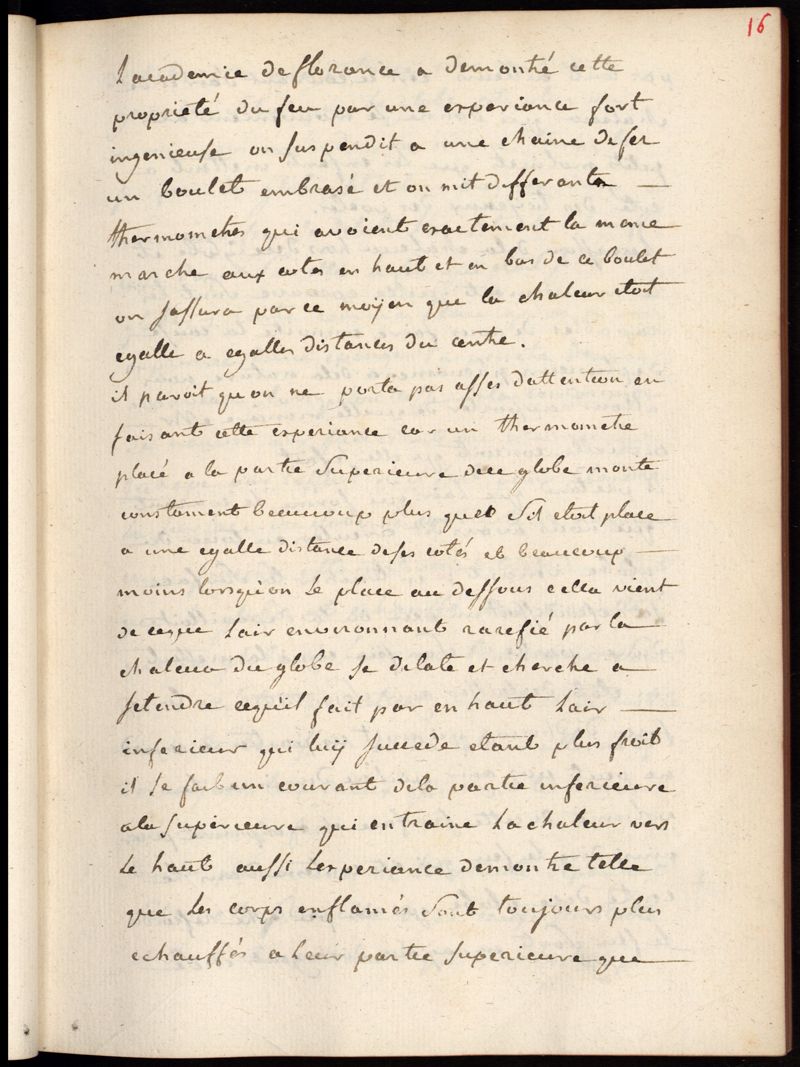 16
Lacademice deflorance a demontré cette
proprieté du feu par une experiance fort
ingenieuse on suspendit a une chaine defer
un boulet embrasé et on mit differants
thermometres qui avoient exactement la meme
marche aux cotes en haut et en bas de ce boulet
on sassura par ce moyen que la chaleur etoit
egalle a egalles distances du centre.
il paroit quon ne porta pas asses dattention en
faisant cette experiance car un thermometre
placé a la partie superieure dece globe monte
constament beaucoup plus que sil etoit place
a une egalle distance deses cotés et beaucoup
moins lorsquon le place au dessous cella vient
de ceque lair environnant rarefié par la
chaleur du globe se dilate et cherche a
setendre cequil fait par en haut Lair
inferieur qui luy succede etant plus froit
il se fait un courant dela partie inferieure
ala superieure qui entraine la chaleur vers
le haut aussi lexperiance demontre telle
que les corps enflamés sont toujours plus
echauffés a leur partie superieure que